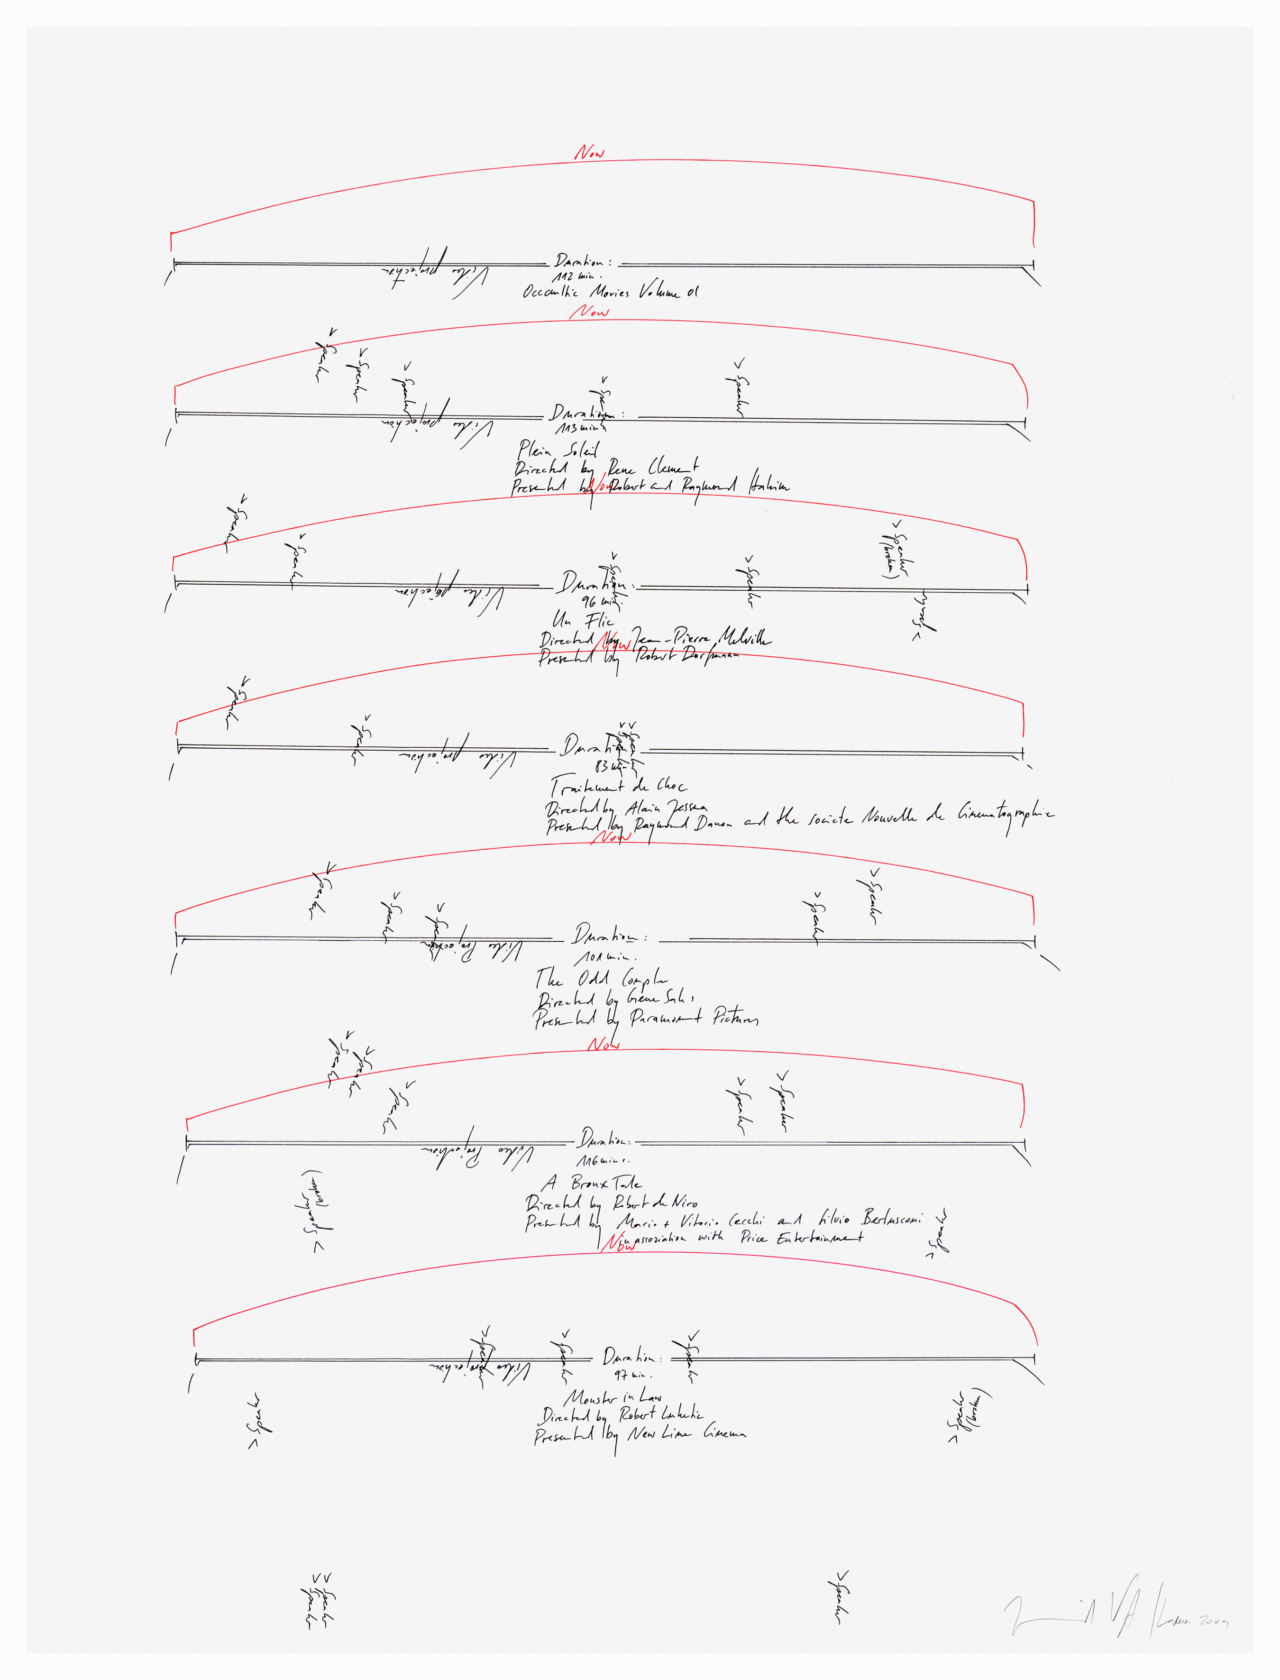 Now
Video projection
Duration:
112 min.
Occaultic Movies Volume 01
Now
> Speaker
> Speaker
> Speaker
> Speaker
> Speaker
Video projection
Duration:
113 min
Plein Soleil
Directed by Rene Clement
Presented by Robert and Raymond Hakim
Now
> Speaker
> Speaker
> Speaker
> Speaker
> Speaker
(broken)
> Speaker
Video projection
Duration:
96 min.
Un Flic
Directed by Jean-Pierre Melville
Presented by Robert Dorfmann
Now
> Speaker
> Speaker
> Speaker
> Speaker
Video projection
Duration
83 min
Traitement de Choc
Directed by Alain Jessua
Presented by Raymond Danon and the societe Nouvelle de Cinematographie
Now
> Speaker
> Speaker
> Speaker
> Speaker
> Speaker
Video Projection
Duration:
101 min.
The Odd Couple
Directed by Gene Saks
Presented by Paramount Pictures
Now
> Speaker
> Speaker
> Speaker
> Speaker
> Speaker
Video Projection
Duration:
116 min.
A Bronx Tale
Directed by Robert de Niro
Presented by Mario + Vitorio Cecchi and Silvio Berlusconi
in assoziation with Price Entertainment
> Speaker
(broken)
> Speaker
Now
> Speaker
> Speaker
> Speaker
Video projection
Duration:
97 min.
Monster in Law
Directed by Robert Luketic
Presented by New Line Cinema
> Speaker
> Speaker
(broken)
> Speaker
> Speaker
> Speaker
2009